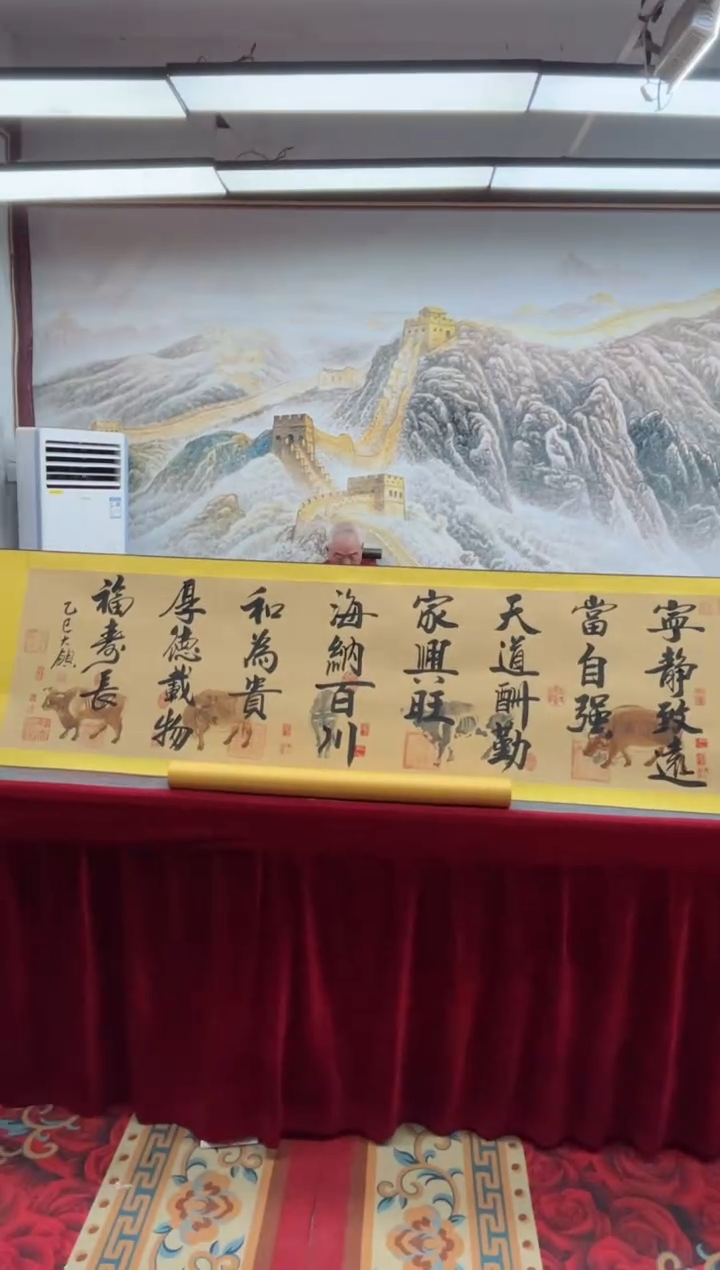 寧靜致遠
當自強
天道酬勤
家興旺
海納百川
和為貴
厚德載物
福壽長
乙巳大領